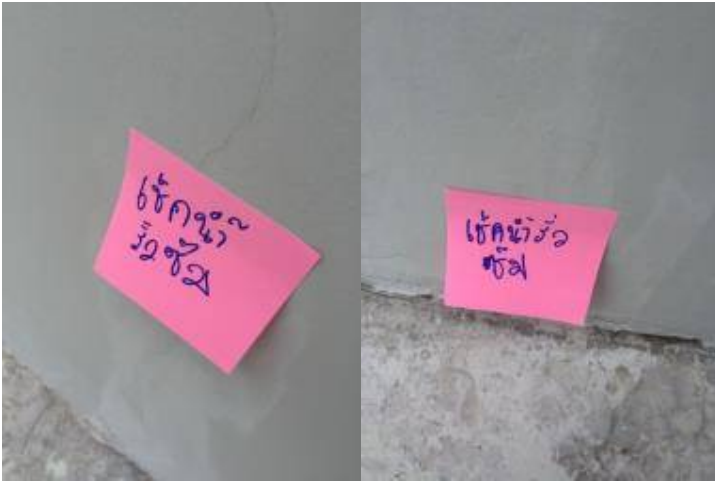 เช็คน้ำ
รั่วซึม
เช็คน้ำรั่ว
ซึม